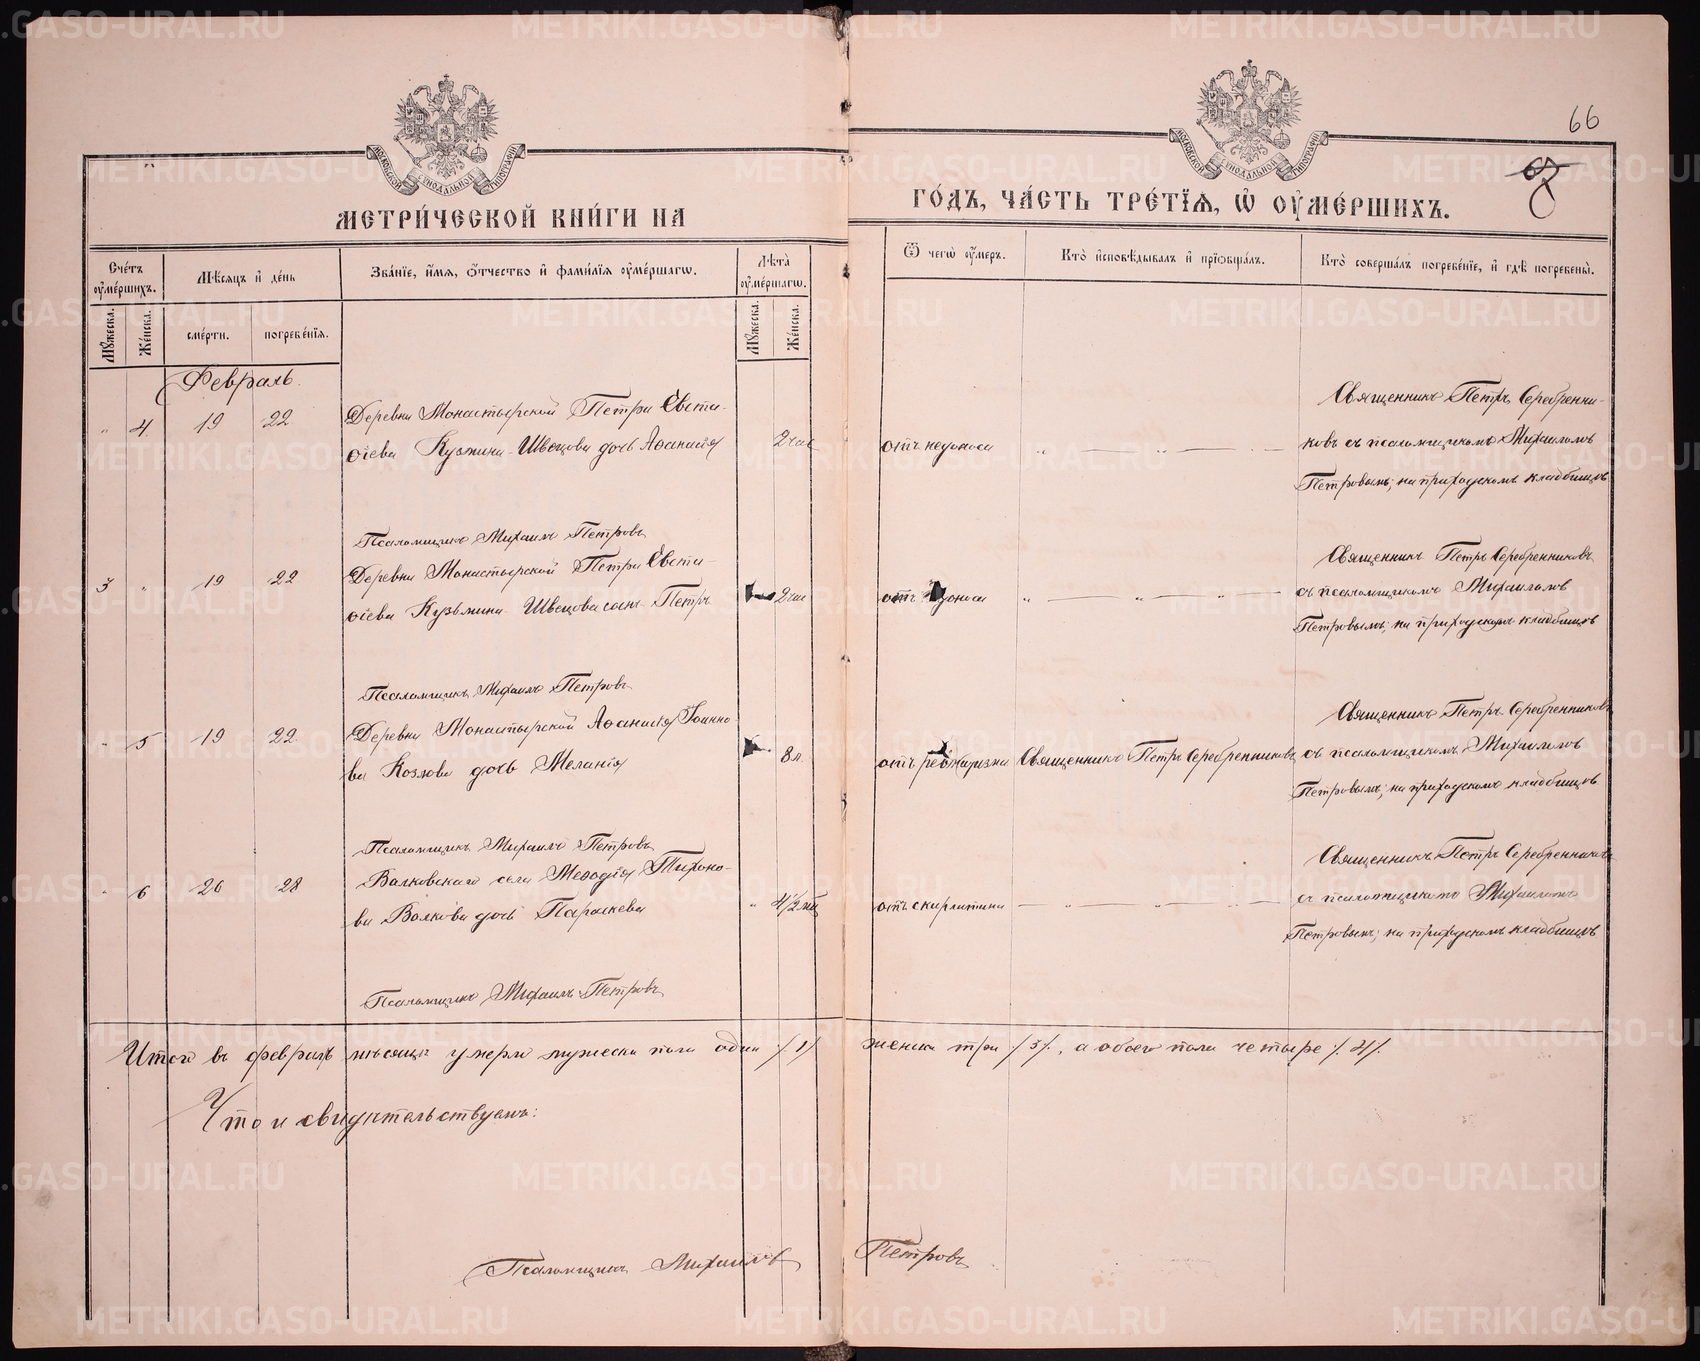 66
МОСКОВСКОЙ СѴНОДАЛЬНОЙ ТИПОГРАФІИ
МОСКОВСКОЙ СѴНОДАЛЬНОЙ ТИПОГРАФІИ
МЕТРИ́ЧЕСКОЙ КНИ́ГИ НА
ГО́ДЪ, ЧА́СТЬ ТРЕ́ТЇѦ, Ѡ҆ ОУ҆МЕ́РШИХЪ.
Сче́тъ оу҆ме́ршихъ.
Мѣсѧцъ и҆ де́нь
Зва́нїе, и҆́мѧ, ѻ҆́тчество и҆ фами́лїѧ оу҆ме́ршагѡ.
Лѣ́та оу҆ме́ршагѡ.
Ѿ чегѡ̀ оу҆́меръ.
Кто̀ и҆сповѣ́дывалъ и҆ прїѡбща́лъ.
Кто̀ соверша́лъ погребе́нїе, и҆ гдѣ̀ погребены̀.
Мꙋ́жеска.
Же́нска.
сме́рти.
погребе́нїѧ.
Мꙋ́жеска.
Же́нска.
Февраль.
" 4. 19 22 Деревни Монастырской Петра Евста-
ѳіева Кузмина-Швецова дочь Аѳанасія 2 час
отъ недоноса " — " —
Священникъ Петръ Серебренни-
ковъ съ псаломщикомъ Михаиломъ
Петровымъ; на приходскомъ кладбищѣ
Псаломщикъ Михаилъ Петровъ
3 " 19 22 Деревни Монастырской Петра Евста-
ѳіева Кузьмина Швецова сынъ Петръ 2 час
отъ недоноса " — " — " —
Священникъ Петръ Серебренниковъ
съ псаломщикомъ Михаиломъ
Петровымъ; на приходскомъ кладбищѣ
Псаломщикъ Михаилъ Петровъ
" 5 19 22. Деревни Монастырской Аѳанасія Іоанно-
ва Козлова дочь Меланія 8 л.
отъ Священникъ Петръ Серебренниковъ
Священникъ Петръ Серебренниковъ
съ псаломщикомъ Михаиломъ
Петровымъ; на приходскомъ кладбищѣ
Псаломщикъ Михаилъ Петровъ
" 6 26 28 Волковскаго села Меѳодія Тихоно-
ва Волкова дочь Параскева " 4 1/2 мѣ
отъ скарлатина — " — " —
Священникъ Петръ Серебренниковъ
съ псаломщикомъ Михаиломъ
Петровымъ; на приходскомъ кладбищѣ
Псаломщикъ Михаилъ Петровъ
Итого въ февралѣ мѣсяцѣ умерло мужеска пола одинъ /1/ женска три /3/., а обоего пола четыре /4/.
Что и свидѣтельствуемъ:
Псаломщикъ Михаилъ Петровъ
METRIKI.GASO-URAL.RU